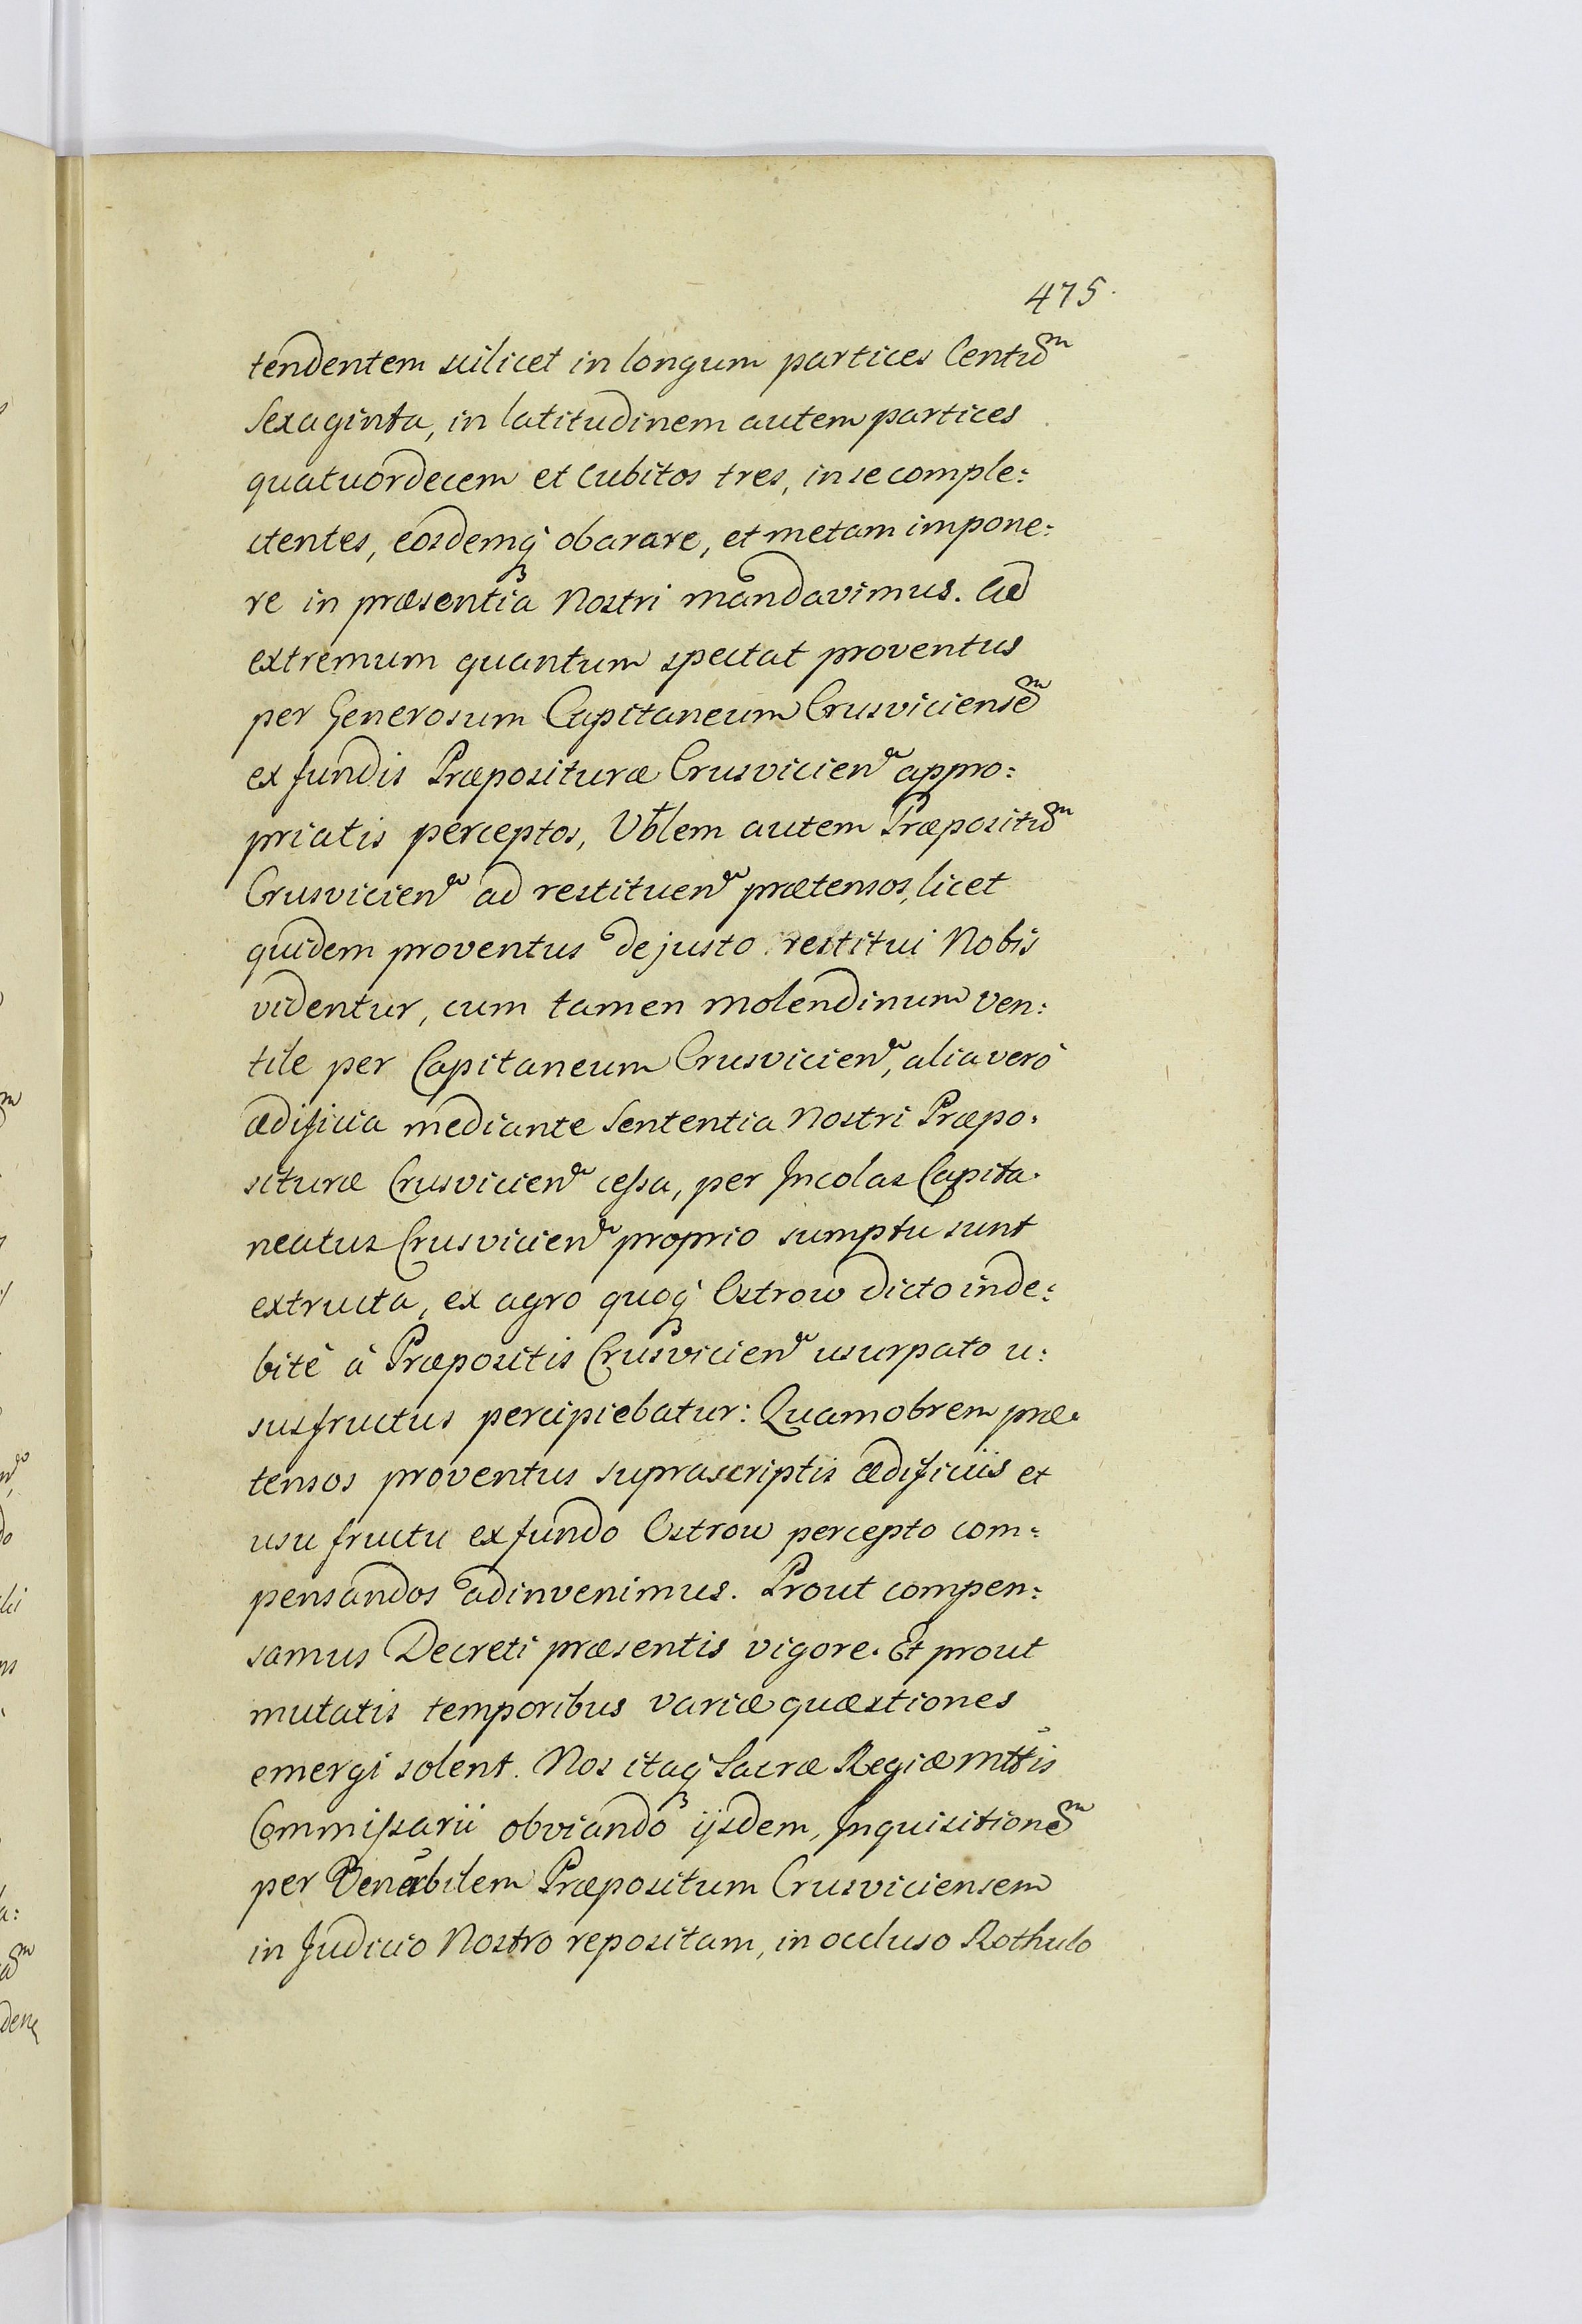 475.
tendentem scilicet in longum partices Centū
sexaginta, in latitudinem autem partices
quatuordecem et Cubitos tres, in se comple:
ctentes, eosdemq; obarare, et metam impone:
re in præsentia Nostri mandavimus. Ad
extremum quantum spectat proventus
per Generosum Capitaneum Crusviciensē
ex fundis Præposituræ Crusvicien̄ appro:
priatis perceptos, Vb̄lem autem Præpositū
Crusvicien̄ ad restituen̄ prætensos, licet
quidem proventus de justo restitui Nobis
videntur, cum tamen molendinum ven:
tile per Capitaneum Crusvicien̄, alia verò
ædificia mediante Sententia Nostri Præpo:
situræ Crusvicien̄ cessa, per Incolas Capita:
neatus Crusvicien̄ proprio sumptu sunt
extructa, ex agro quoq; Ostrow dicto inde:
bitè à Præpositis Crusvicien̄ usurpato u:
susfructus percipiebatur: Quamobrem præ:
tensos proventus suprascriptis ædificiis et
usu fructu ex fundo Ostrow percepto com:
pensandos adinvenimus. Prout compen:
samus Decreti præsentis vigore. Et prout
mutatis temporibus variæ quæstiones
emergi solent. Nos itaq; Sacræ Regiæ Mttis
Commissarii obviando ijsdem, Inquisitionē
per Venerabilem Præpositum Crusviciensem
in Judicio Nostro repositam, in occluso Rothulo